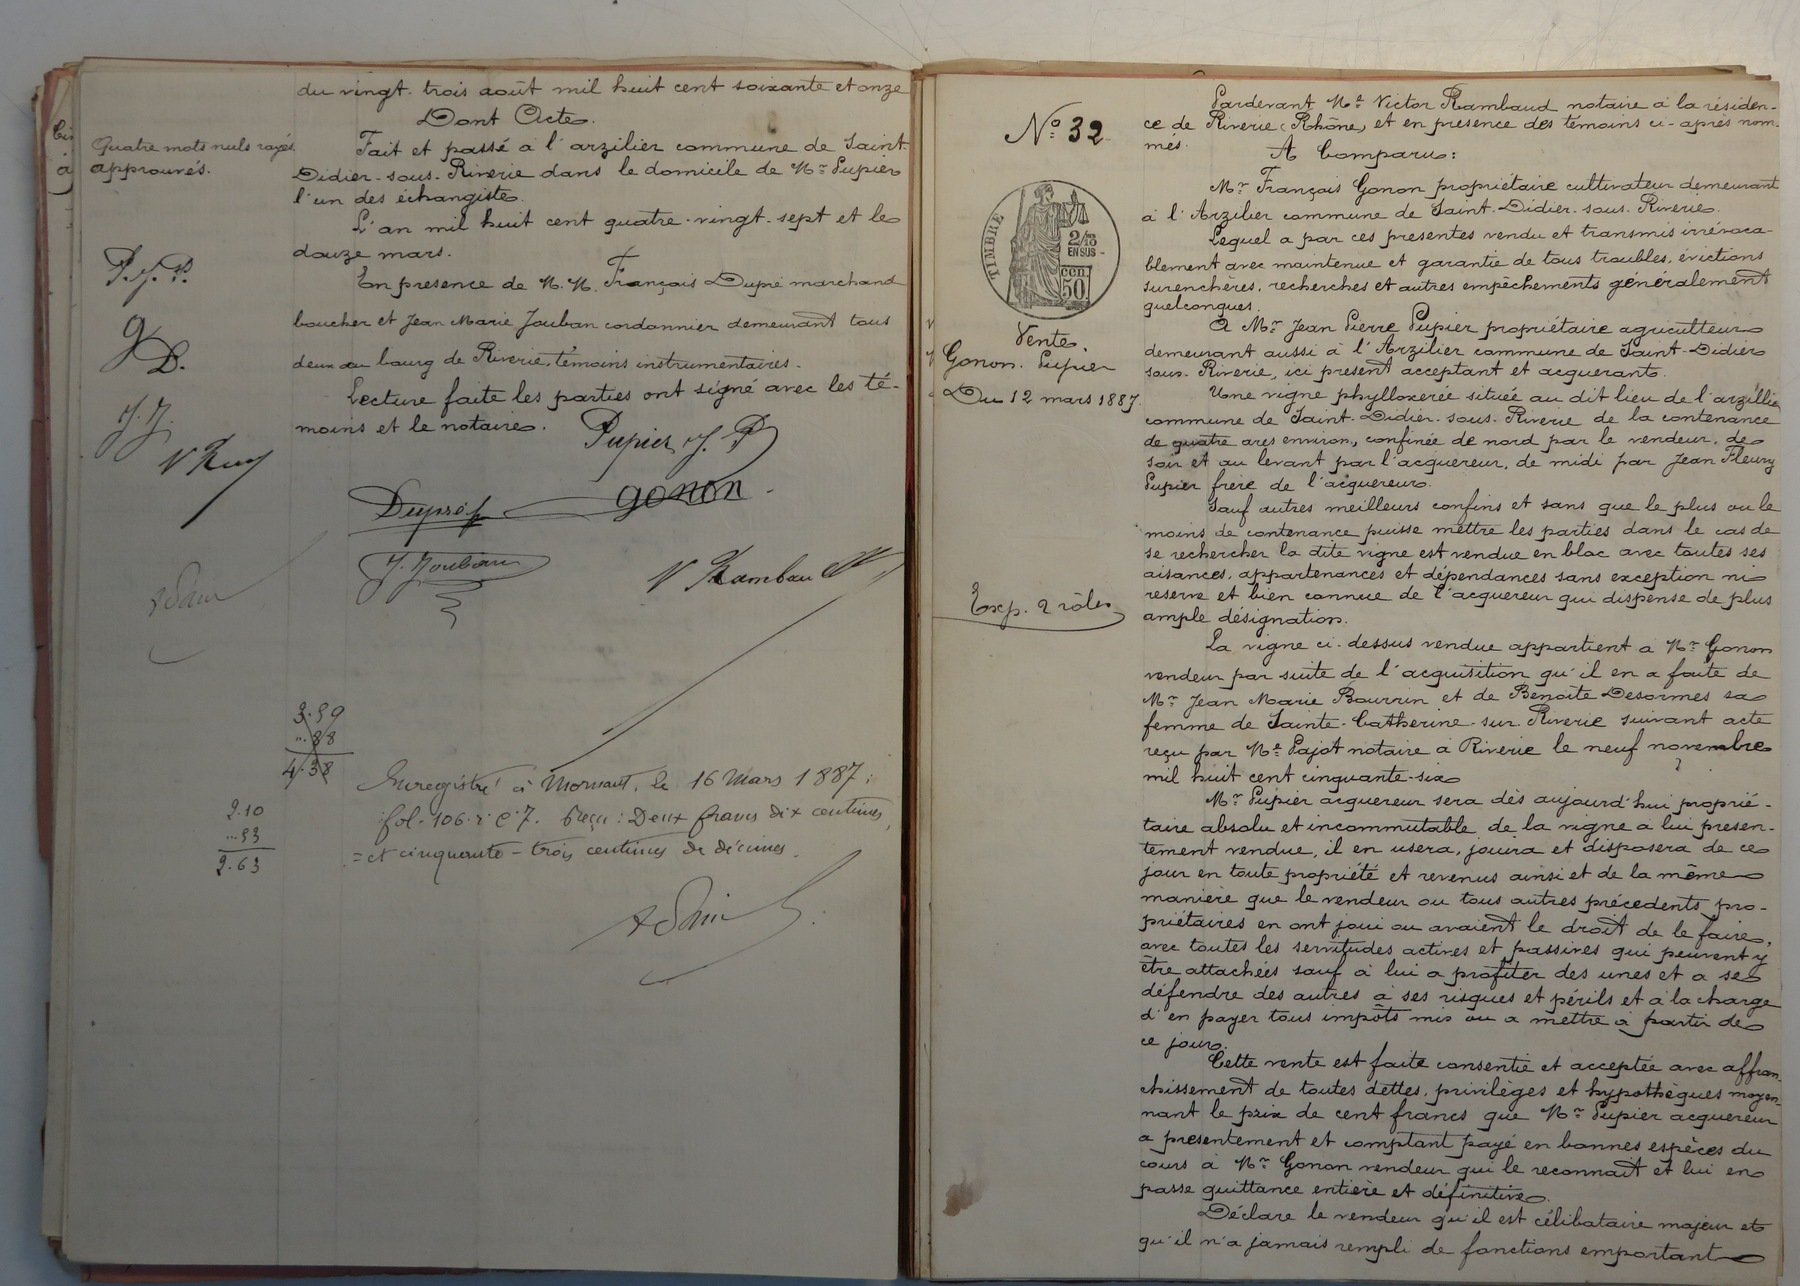 du vingt-trois août mil huit cent soixante et onze
Dont Acte.
Quatre mots nuls rayés
approuvés.
Fait et passé à l'arzilier commune de Saint
Didier-sous-Riverie dans le domicile de Mr Pupier
l'un des échangistes.
L'an mil huit cent quatre-vingt-sept et le
douze mars.
En presence de M.M. François Dupré marchand
boucher et Jean Marie Jouban cordonnier demeurant tous
deux au bourg de Riverie, témoins instrumentaires.
Lecture faite les parties ont signé avec les té-
moins et le notaire.
P. J. P.
g
D.
J. J.
Pupier J. P
Dupré f
gonon.
J. Jouban
V Rambaud
3.59
"88
4.38
2.10
"53
2.63
Enregistré à Mornant, le 16 Mars 1887,
fol. 106. r. C. 7. Reçu: Deux francs dix centimes,
= et cinquante-trois centimes de décimes.
No 32
TIMBRE
2/10
EN SUS
cen.
50
Vente
Gonon. Pupier
Du 12 mars 1887.
Exp. 2 rôles
Pardevant Me Victor Rambaud notaire à la résiden-
ce de Riverie (Rhône) et en presence des témoins ci-après nom-
més.
A Comparu:
Mr François Gonon propriétaire cultivateur demeurant
à l'Arzilier commune de Saint-Didier-sous-Riverie.
Lequel a par ces presentes vendu et transmis irrévoca-
blement avec maintenue et garantie de tous troubles, évictions
surenchères, recherches et autres empêchements généralement
quelconques.
A Mr Jean Pierre Pupier propriétaire agriculteur
demeurant aussi à l'Arzilier commune de Saint-Didier
sous-Riverie, ici present acceptant et acquerant.
Une vigne phylloxerée située au dit lieu de l'arzillier
commune de Saint-Didier-sous-Riverie de la contenance
de quatre ares environ, confinée de nord par le vendeur, de
soir et au levant par l'acquereur, de midi par Jean Fleury
Pupier frère de l'acquereur.
Sauf autres meilleurs confins et sans que le plus ou le
moins de contenance puisse mettre les parties dans le cas de
se rechercher la dite vigne est vendue en bloc avec toutes ses
aisances, appartenances et dépendances sans exception ni
reserve et bien connue de l'acquereur qui dispense de plus
ample désignation.
La vigne ci-dessus vendue appartient a Mr Gonon
vendeur par suite de l'acquisition qu'il en a faite de
Mr Jean Marie Bourrin et de Benoîte Desormes sa
femme de Sainte-Catherine-sur-Riverie suivant acte
reçu par Me Pajot notaire à Riverie le neuf novembre
mil huit cent cinquante-six
Mr Pupier acquereur sera dès aujourd'hui proprié-
taire absolu et incommutable de la vigne a lui presen-
tement vendue, il en usera, jouira et disposera de ce
jour en toute propriété et revenus ainsi et de la même
manière que le vendeur ou tous autres précedents pro-
priétaires en ont joui ou avaient le droit de le faire,
avec toutes les servitudes actives et passives qui peuvent y
être attachées sauf à lui a profiter des unes et a se
défendre des autres à ses risques et périls et à la charge
d'en payer tous impôts mis ou a mettre à partir de
ce jour.
Cette vente est faite consentie et acceptée avec affran-
chissement de toutes dettes, privilèges et hypothèques moyen-
nant le prix de cent francs que Mr Pupier acquereur
a presentement et comptant payé en bonnes espèces du
cours à Mr Gonon vendeur qui le reconnait et lui en
passe quittance entière et définitive.
Déclare le vendeur qu'il est célibataire majeur et
qu'il n'a jamais rempli de fonctions emportant